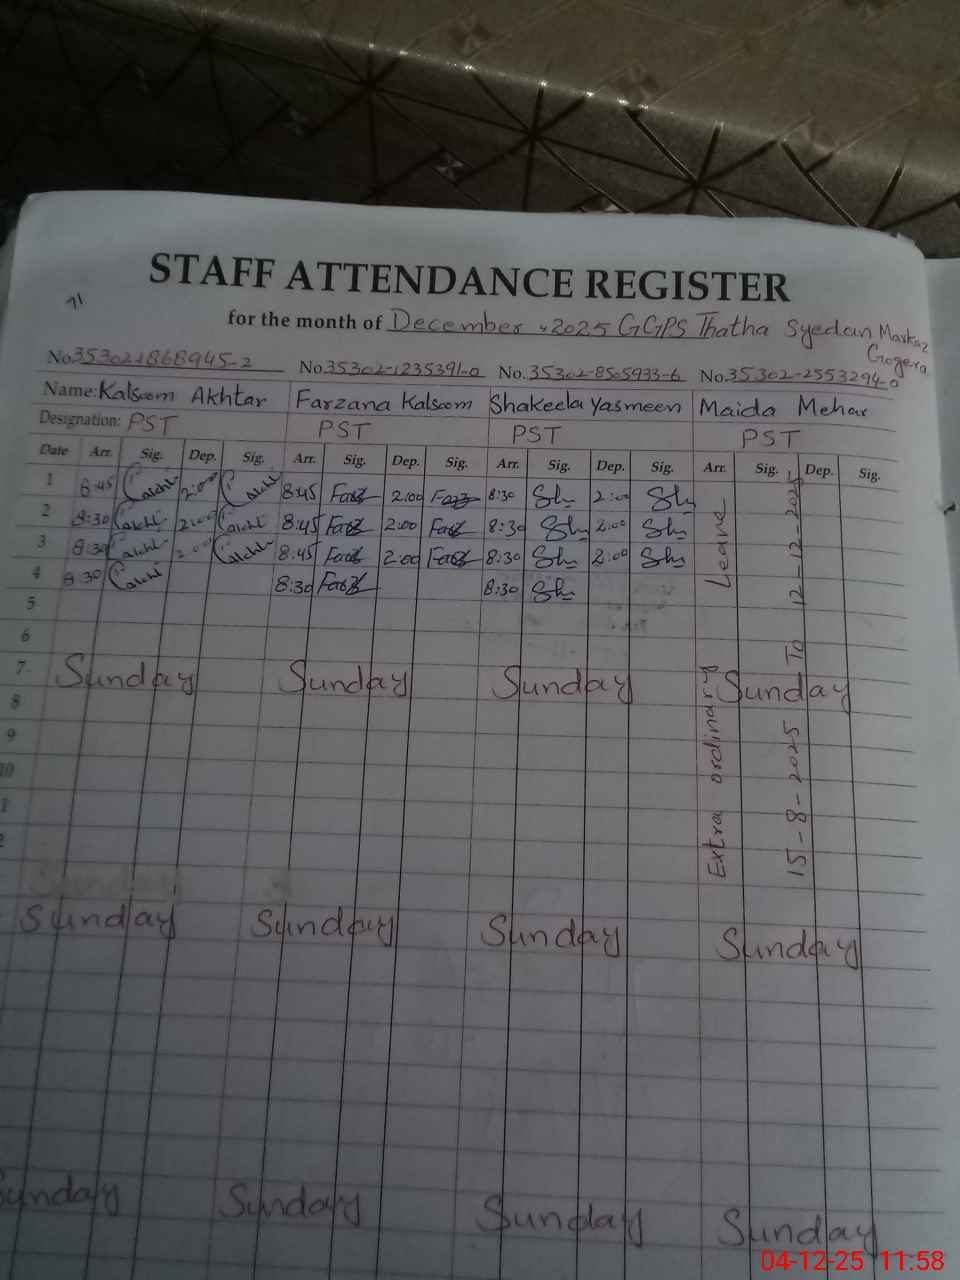 STAFF ATTENDANCE REGISTER
for the month of December, 2025 GGPS Thatha Syedan Markaz
Gogera
No. 35302-1235391-0 No. 35302-8505933-6 No. 35302-2553294-0
Name: Kalsoom Akhtar Farzana Kalsoom Shakeela Yasmeen Maida Mehar
Designation: PST PST PST PST
Date Arr. Sig. Dep. Sig. Arr. Sig. Dep. Sig. Arr. Sig. Dep. Sig. Arr. Sig. Dep. Sig.
1 8:45 2:00 8:45 2:00 8:30 2:00
2 8:30 2:00 8:45 2:00 8:30 2:00
3 8:30 2:00 8:45 2:00 8:30 2:00
4 8:30 8:30 8:30
5
6
7 Sunday Sunday Sunday Sunday
8
9
10
1
2
Extra ordinary Leave
15-8-2025 To 12-12-2025
Sunday Sunday Sunday Sunday
Sunday Sunday Sunday Sunday
04-12-25 11:58